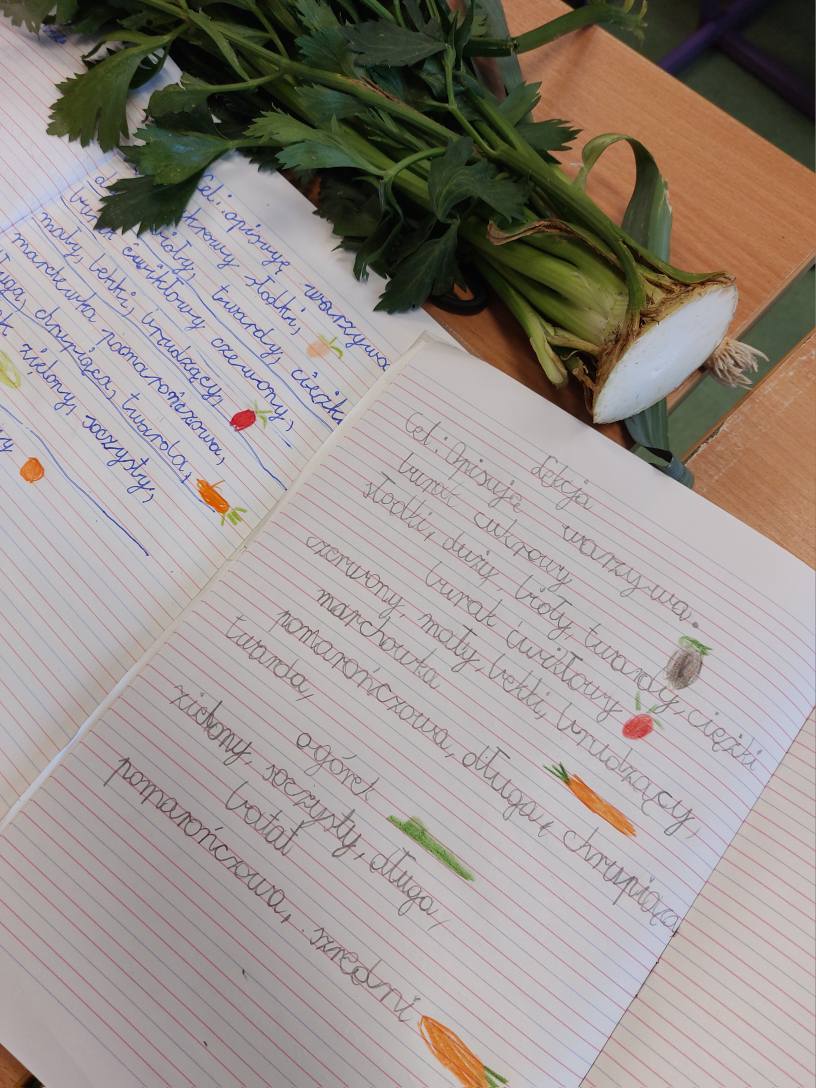 Cel: opisuję warzywa
cukrowy słodki,
twardy, ciężki
burak ćwikłowy czerwony,
mały, lekki, brudzący,
marchewka pomarańczowa,
chrupiąca, twarda,
zielony, soczysty,
Lekcja
Cel: Opisuję warzywa.
burak cukrowy
słodki, duży, biały, twardy, ciężki
burak ćwikłowy
czerwony, mały, lekki, brudzący,
marchowka
pomarończowa, długa, chrupiąca
twarda,
ogórek
zielony, soczysty, długa,
batat
pomarończowa, szredni